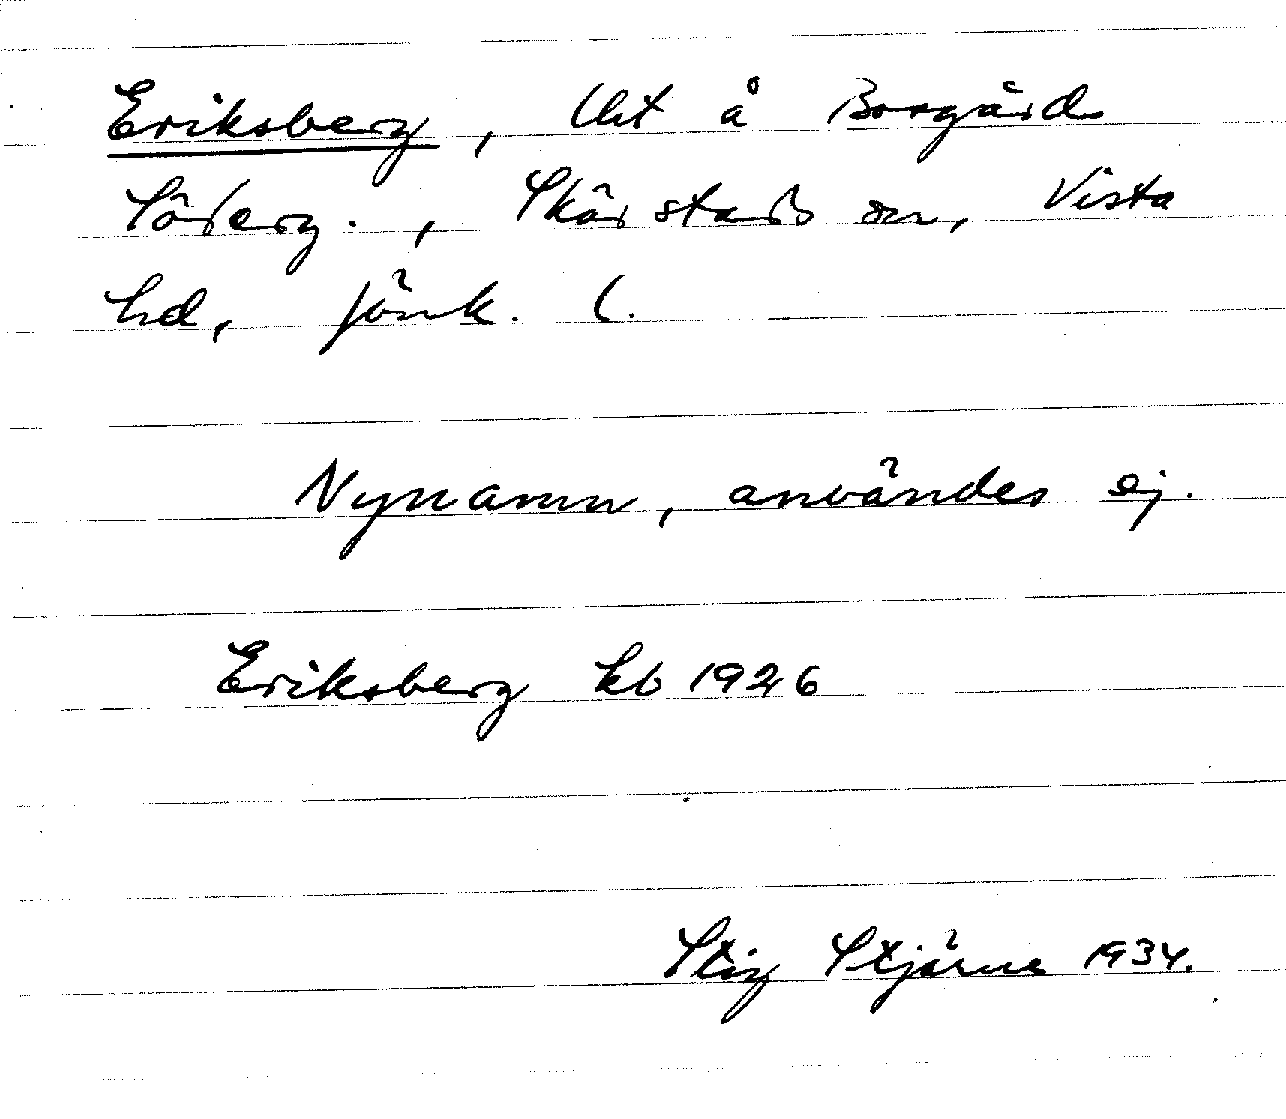 Eriksberg, lht å Borgård
Söderg., Skärstads sn, Vista
hd, Jönk. l.
Nynamn, användes ej.
Eriksberg kb 1926
Stig Stjärne 1934.